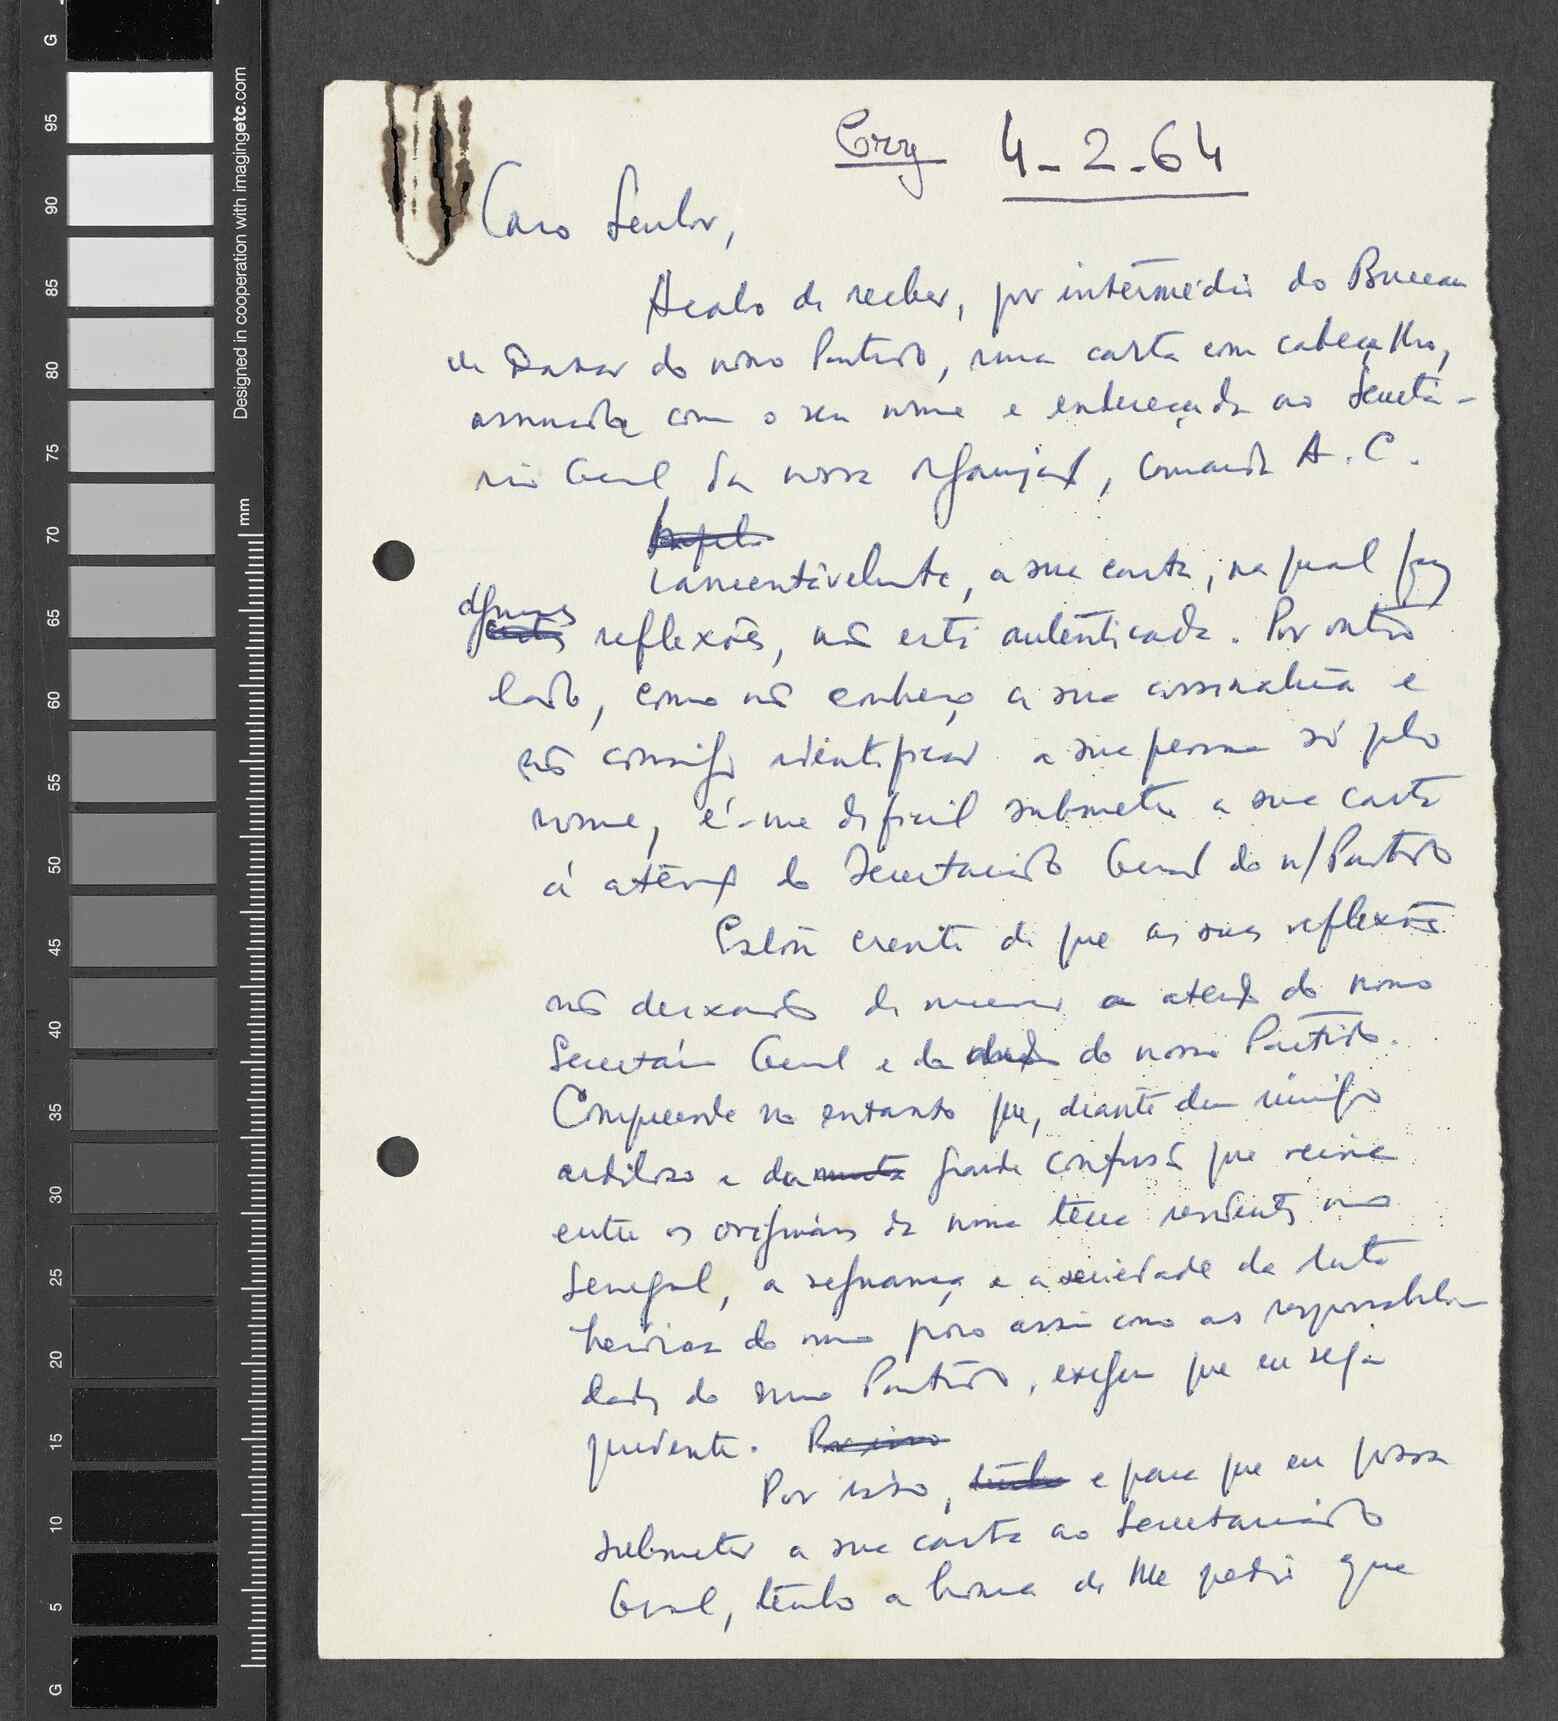 Cry 4-2-64
Caro Senhor,
Acabo de receber, por intermédio do Bureau
de Dakar do nosso Partido, uma carta com cabeçalho,
assinada com o seu nome e endereçada ao Secretá-
rio Geral da nossa organização, camarada A. C.
Lamentávelmente, a sua carta, na qual faz
algumas reflexões, não está autenticada. Por outro
lado, como não conheço a sua assinatura e
não consigo identificar a sua pessoa só pelo
nome, é-me difícil submeter a sua carta
á atenção do Secretariado Geral do n/Partido
Estou crente de que as suas reflexões
não deixarão de merecer a atenção do nosso
Secretário Geral e da do nosso Partido.
Compreende no entanto que, diante dum inimigo
ardiloso e da grande confusão que reina
entre os originários da nossa terra residentes no
Senegal, a segurança e a seriedade da luta
heróica do nosso povo assim como as responsabili-
dades do nosso Partido, exigem que eu seja
prudente. Por isso
Por isso, e para que eu possa
submeter a sua carta ao Secretariado
Geral, tenho a honra de lhe pedir que
G 95 90 85 80 75 70 65 60 55 50 45 40 35 30 25 20 15 10 5 G
mm
Designed in cooperation with imagingetc.com